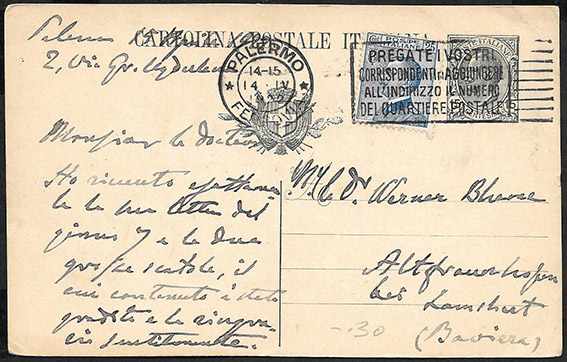 CARTOLINA POSTALE ITALIANA
Palermo
2, Via
PALERMO
14-15
14 IV
FERROVIA
POSTE ITALIANE
PREGATE I VOSTRI
CORRISPONDENTI DI AGGIUNGERE
ALL'INDIRIZZO IL NUMERO
DEL QUARTIERE POSTALE
Monsieur le docteur
Ho ricevuto
la sua lettera del
giorno 7 e le due
scatole, il
cui contenuto è stato
gradito e la ringra-
Dr. Werner
Altfraunhofen
bei Landshut
(Baviera)
-.30